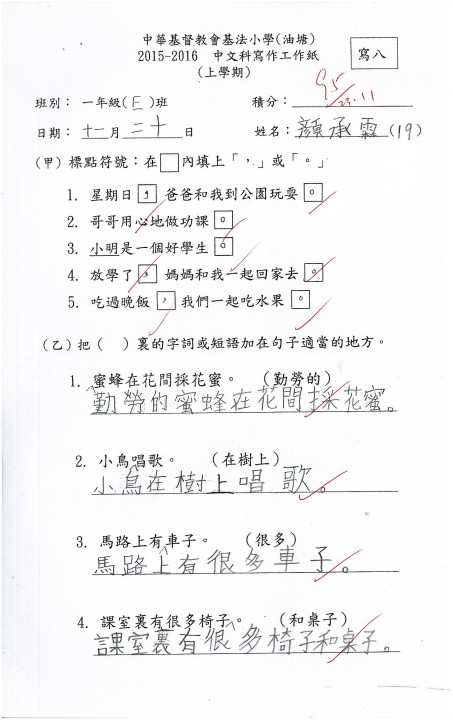 中華基督教會基法小學(油塘)
2015-2016 中文科寫作工作紙
(上學期)
寫八
班別： 一年級(E)班 積分： 95 23.11
日期： 十一月二十日 姓名： 顏承霖(19)
(甲) 標點符號：在□內填上「，」或「。」
1. 星期日，爸爸和我到公園玩耍。
2. 哥哥用心地做功課。
3. 小明是一個好學生。
4. 放學了，媽媽和我一起回家去。
5. 吃過晚飯，我們一起吃水果。
(乙) 把（ ）裏的字詞或短語加在句子適當的地方。
1. ^蜜蜂在花間採花蜜。 (勤勞的)
勤勞的蜜蜂在花間採花蜜。
2. 小鳥^唱歌。 (在樹上)
小鳥在樹上唱歌。
3. 馬路上有^車子。 (很多)
馬路上有很多車子。
4. 課室裏有很多椅子^。 (和桌子)
課室裏有很多椅子和桌子。